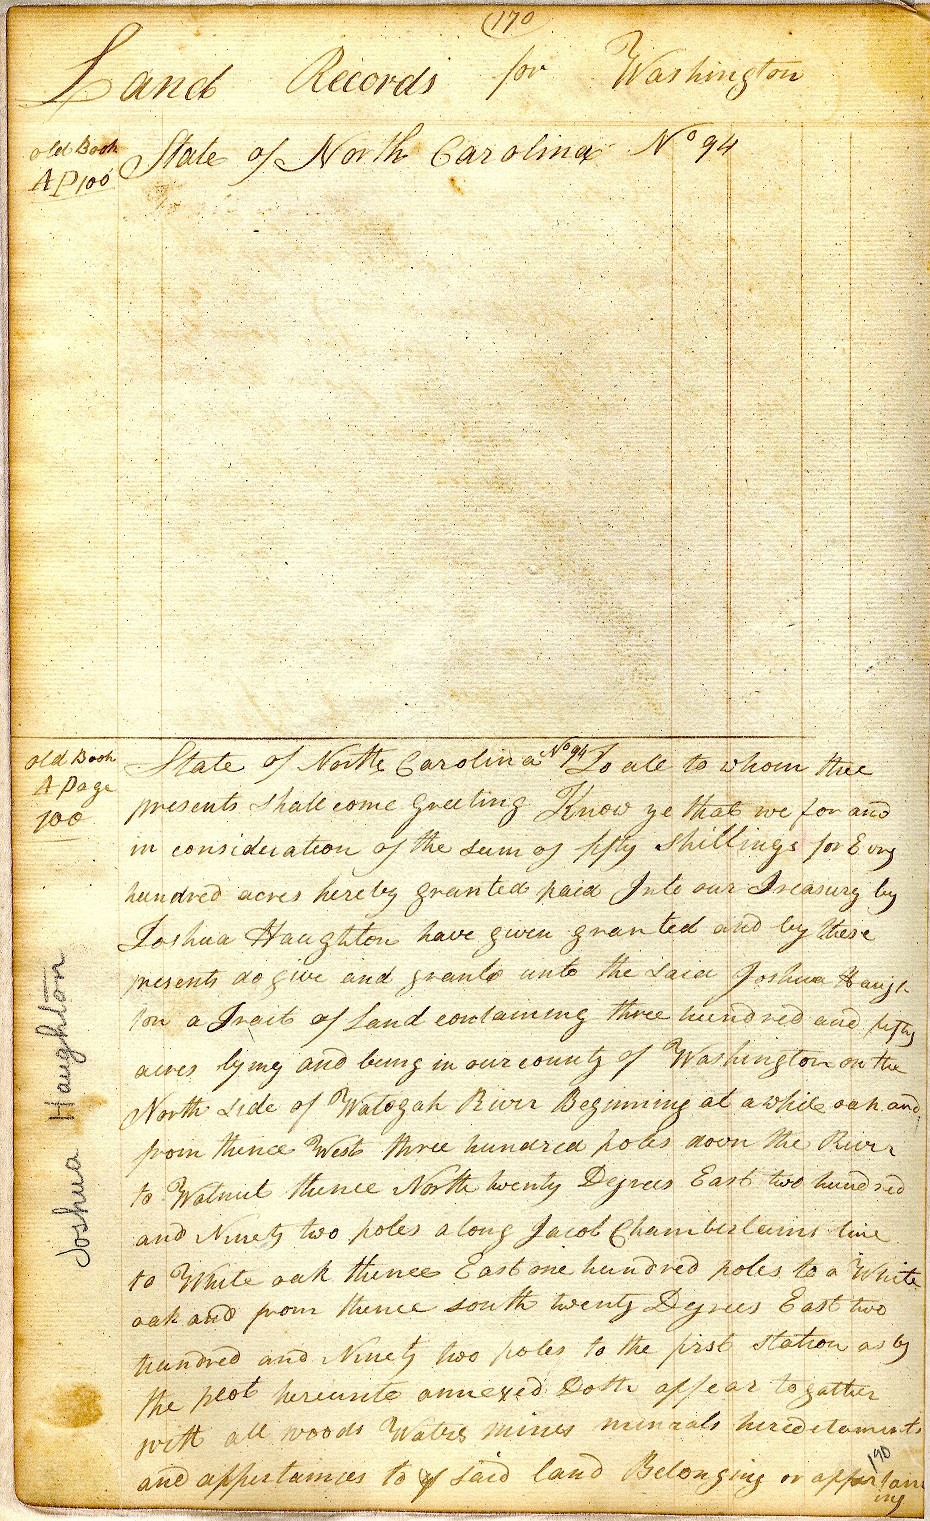 170
Land Records for Washington
Old Book
A P 100
State of North Carolina No 94
Old Book
A Page
100
State of North Carolina No 94 To all to whom thee
presents shall come Greeting Know ye that we for and
in consideration of the sum of fifty Shillings for Evry
hundred acres hereby granted paid Into our Treasury by
Joshua Haughton have given granted and by these
presents do give and grante unto the said Joshua Haugh-
ton a Tract of Land containing three hundred and fifty
acres lying and being in our county of Washington on the
North side of Watogah River Beginning at a white oak and
from thence West three hundred poles down the River
to Walnut thence North twenty Degrees East two hundred
and Ninety two poles along Jacob Chamberlains line
to White oak thence East one hundred poles to a White
oak and from thence south twenty Degrees East two
hundred and Ninety two poles to the first station as by
the plot hereunto annexed Doth appear togather
with all woods Waters mines minerals hereditaments
and appertainces to ye said land Belonging or appertain
ing
190
Joshua Haughton